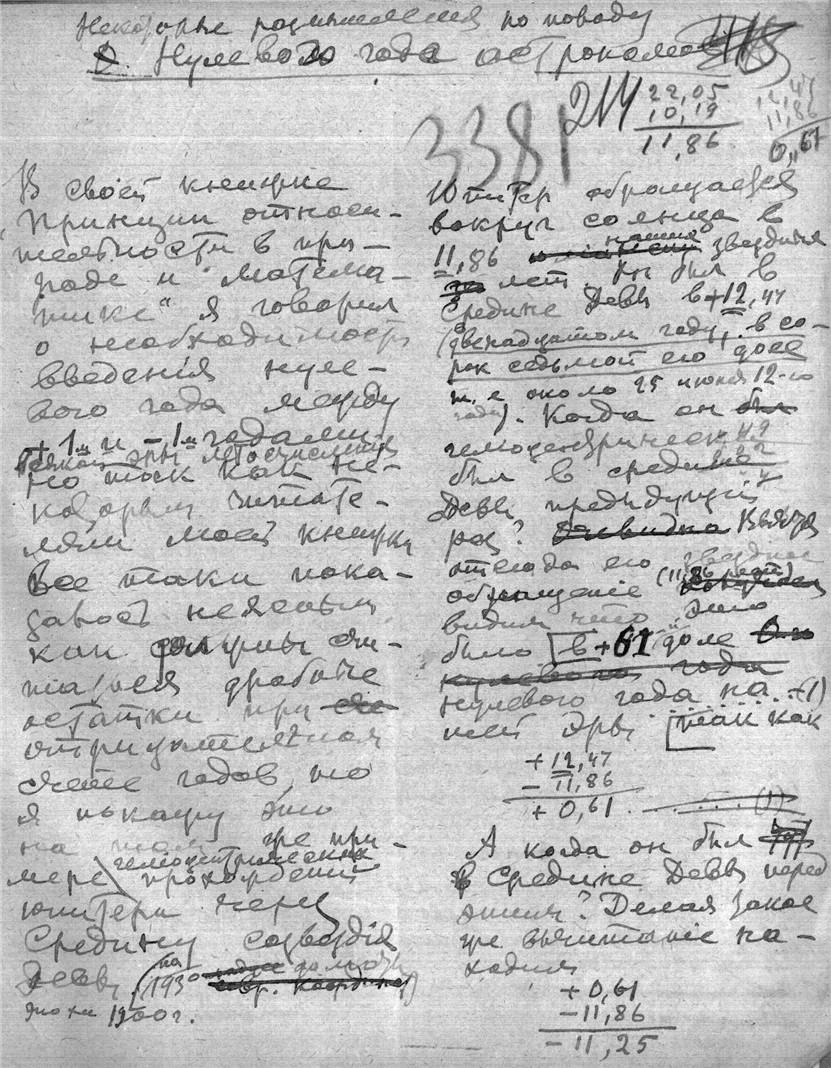 Некоторые размышления по поводу
Нулевого года астрономов
3381
214
22,05
10,19
11,86
12,47
11,86
0,61
В своей книжке
„Принцип относи-
тельности в при-
роде и матема-
тике" я говорил
о необходимости
введения нуле-
вого года между
+ 1м и – 1м годами
всякой эры летосчисления
Но так как не-
которым читате-
лям моей книжки
все таки пока-
залось неясным
как должны счи-
таться дробные
остатки при
отрицательном
счете годов, то
я покажу это
на том же при-
мере гелиоцентрических
прохождений
Юпитера через
Средину созвездия
Девы (на 193°
эпохи 1900 г.
Юпитер обращается
вокруг солнца в
11,86 наших звездных
лет. Он был в
Средине Девы в +12,47
(двенадцатом году, в со-
рок седьмой его доле
т. е около 25 июня 12-го
года). Когда он был
гелиоцентрически
был в средине
Девы предидущий
раз? Очевидно Вычтя
отсюда его звездное
обращение (11,86 лет)
видим что это
было в +61 доле
нулевого года на
шей эры так как
+ 12,47
– 11,86
+ 0,61 (1)
А когда он был
в Средине Девы перед
этим? Делая такое
же вычитание на-
ходим
+ 0,61
– 11,86
– 11,25